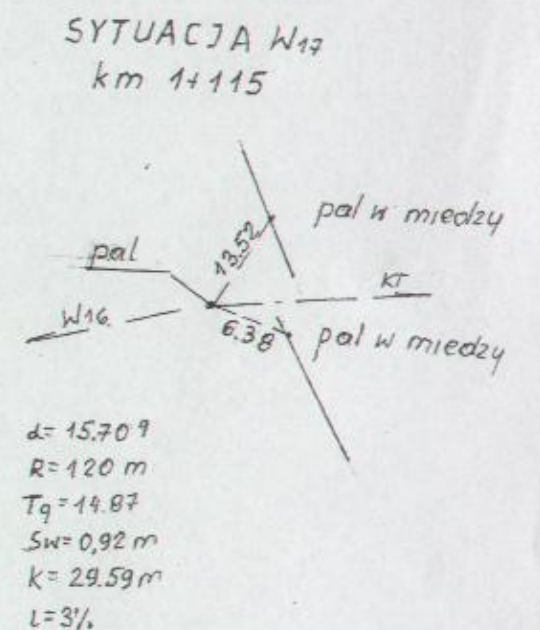 SYTUACJA W17
km 1+115
pal w miedzy
13.52
pal
KT
W16
6.38
pal w miedzy
α= 15.70 g
R= 120 m
Tg= 14.87
Sw= 0,92 m
K= 29.59 m
i= 3%